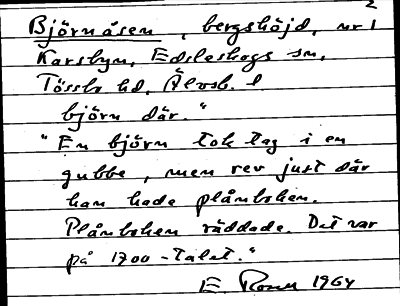 2
Björnåsen, bergshöjd, nr 1
Karsbyn, Edsleskogs sn,
Tössbo hd, Älvsb. l
björn där."
"En björn tok tag i en
gubbe, men rev just där
han hade plånboken.
Plånboken räddade. Det var
på 1700-talet."
E 1964